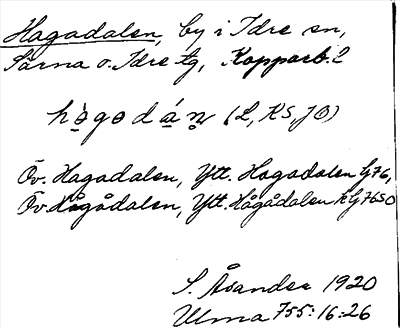 Hagadalen, by i Idre sn,
Särna o. Idre tg, Kopparb. l
hògodán̥ (L, KS, JÖ)
Öv. Hagadalen, Ytt. Hagadalen G76,
Öv. Hågådalen, Ytt. Hågådalen hG7650
S. Åsander 1920
Ulma 755:16:26